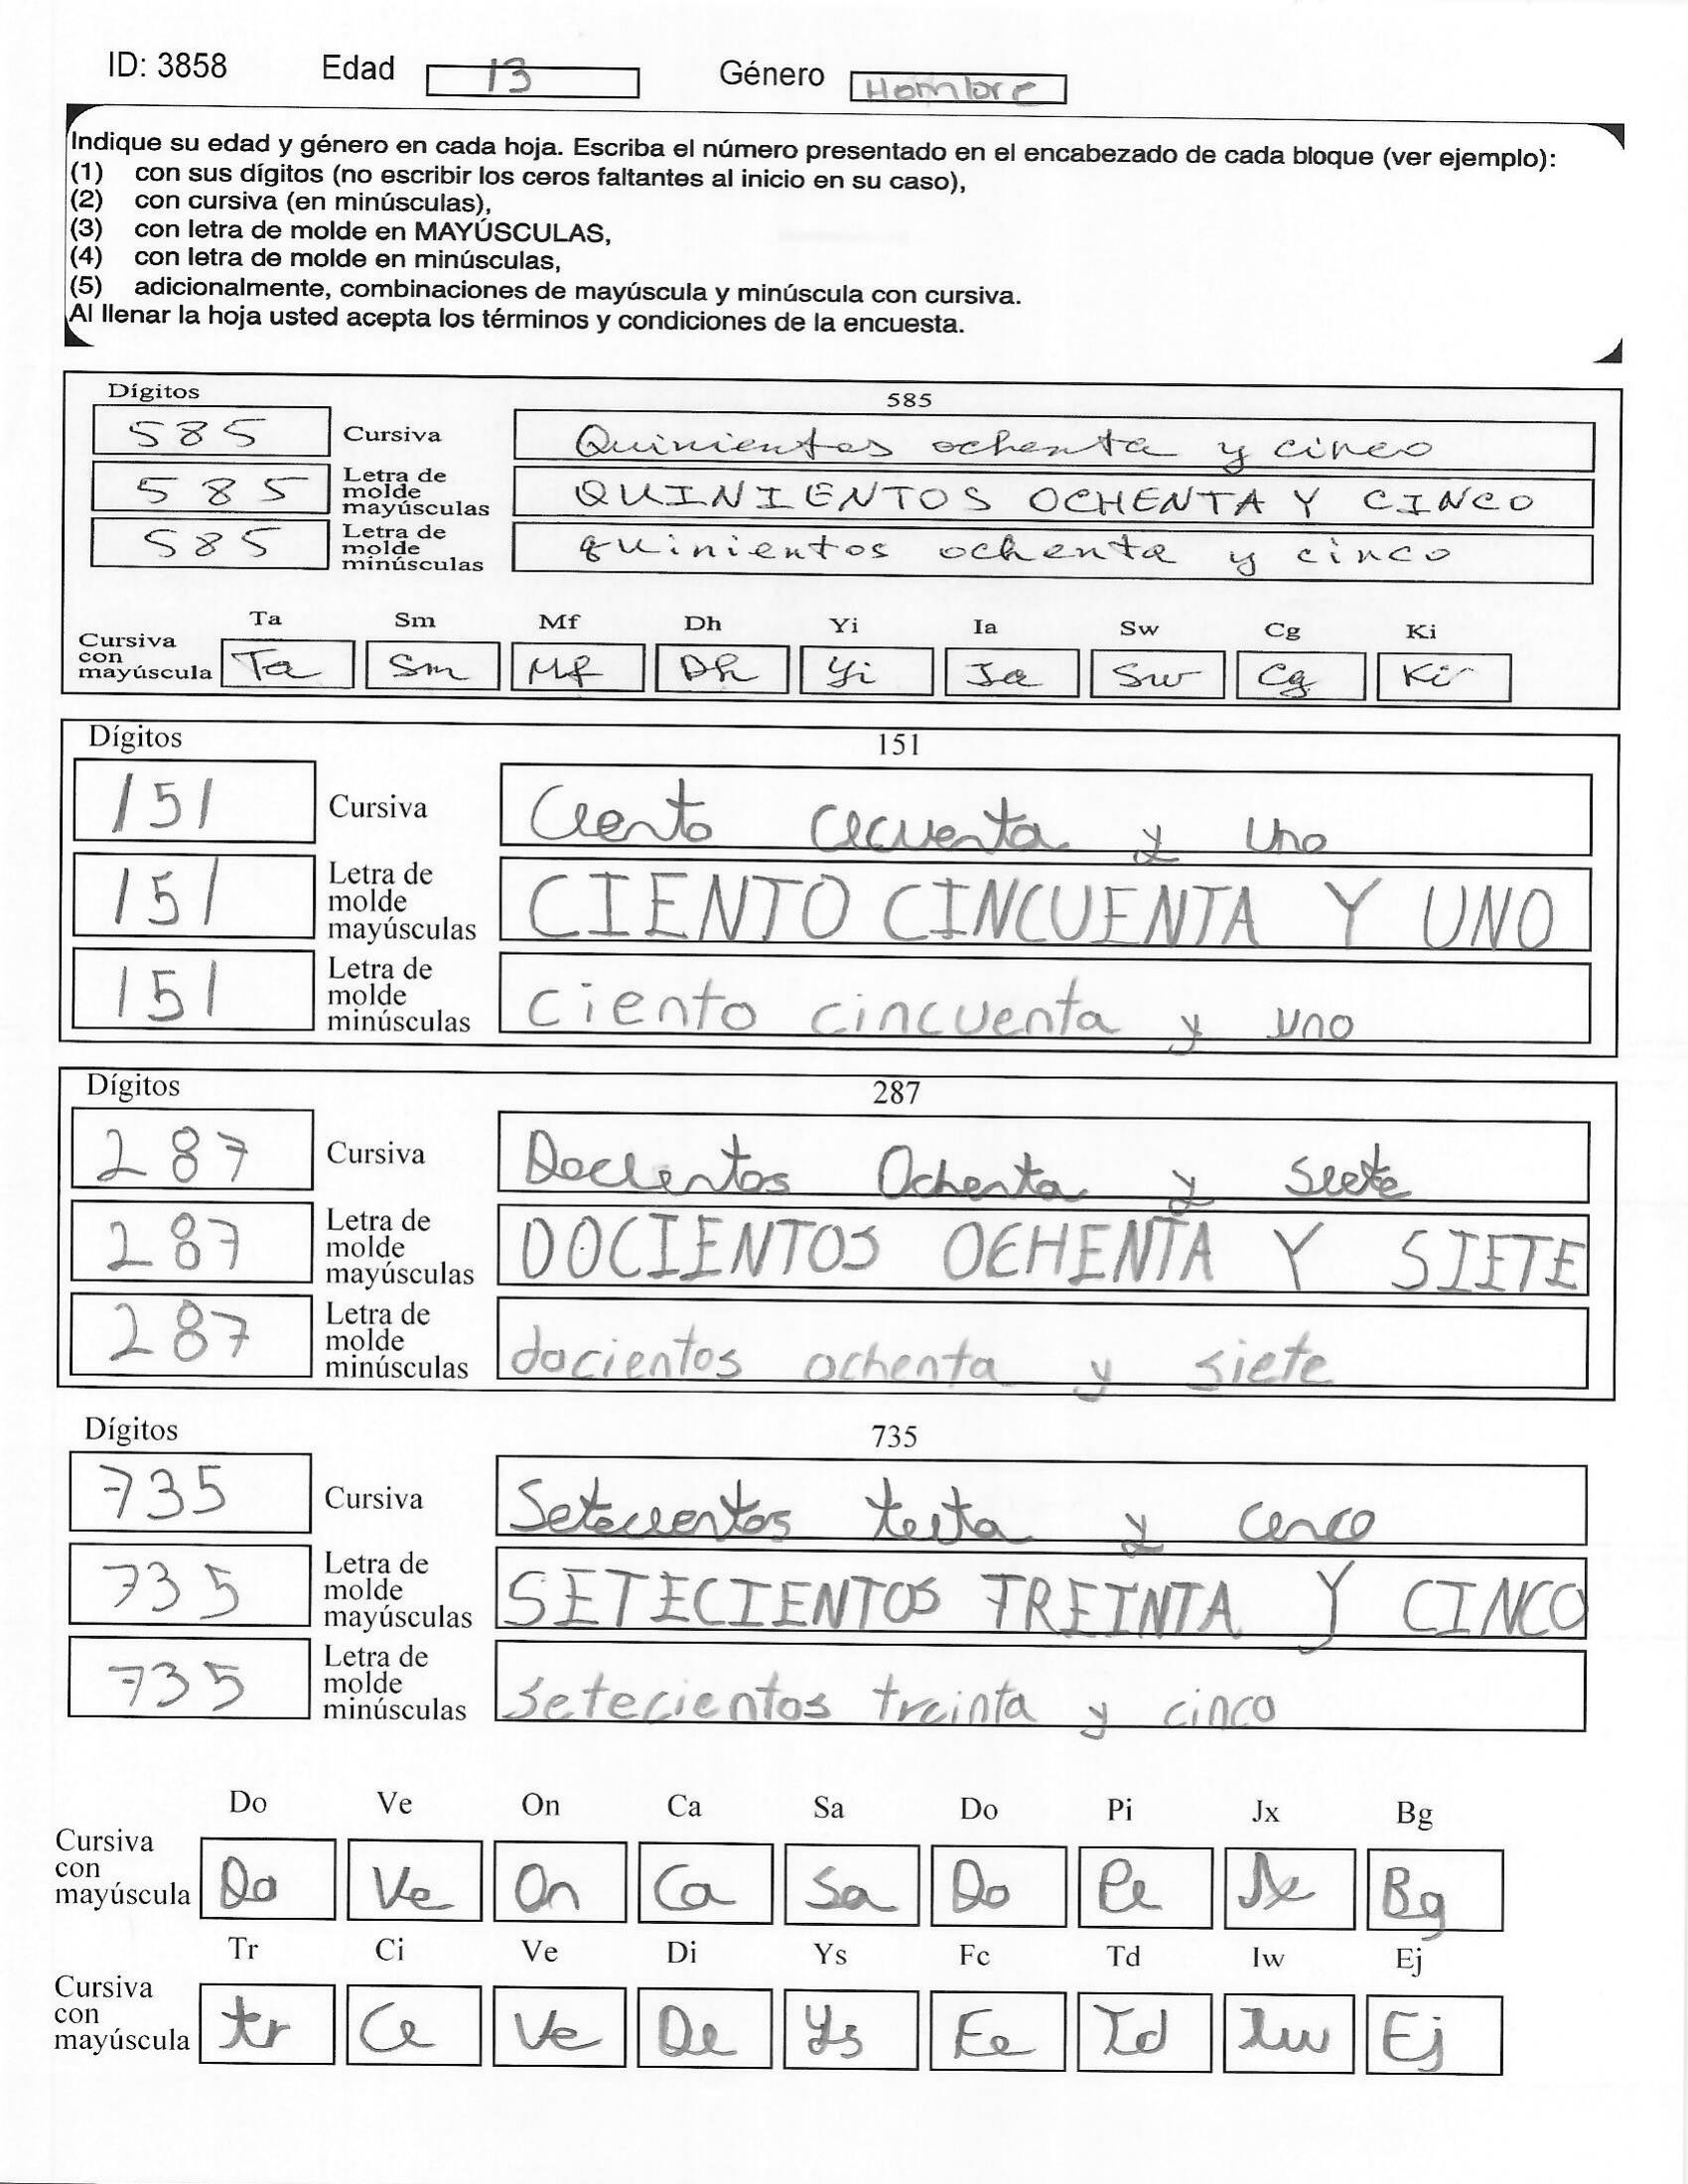 ID: 3858 Edad 13 Género Hombre
Indique su edad y género en cada hoja. Escriba el número presentado en el encabezado de cada bloque (ver ejemplo):
(1) con sus dígitos (no escribir los ceros faltantes al inicio en su caso),
(2) con cursiva (en minúsculas),
(3) con letra de molde en MAYÚSCULAS,
(4) con letra de molde en minúsculas,
(5) adicionalmente, combinaciones de mayúscula y minúscula con cursiva.
Al llenar la hoja usted acepta los términos y condiciones de la encuesta.
Dígitos 585
585 Cursiva Quinientos ochenta y cinco
585 Letra de molde mayúsculas QUINIENTOS OCHENTA Y CINCO
585 Letra de molde minúsculas quinientos ochenta y cinco
Ta Sm Mf Dh Yi Ia Sw Cg Ki
Cursiva con mayúscula Ta Sm Mf Dh Yi Ia Sw Cg Ki
Dígitos 151
151 Cursiva Ciento cicuenta y uno
151 Letra de molde mayúsculas CIENTO CINCUENTA Y UNO
151 Letra de molde minúsculas ciento cincuenta y uno
Dígitos 287
287 Cursiva Docientos Ochenta y siete
287 Letra de molde mayúsculas DOCIENTOS OCHENTA Y SIETE
287 Letra de molde minúsculas docientos ochenta y siete
Dígitos 735
735 Cursiva Setecientos y cinco
735 Letra de molde mayúsculas SETECIENTOS TREINTA Y CINCO
735 Letra de molde minúsculas setecientos treinta y cinco
Do Ve On Ca Sa Do Pi Jx Bg
Cursiva con mayúscula Do Ve On Ca Sa Do Pi Jx Bg
Tr Ci Ve Di Ys Fc Td Iw Ej
Cursiva con mayúscula tr Ci Ve Di Ys Fc Td Iw Ej